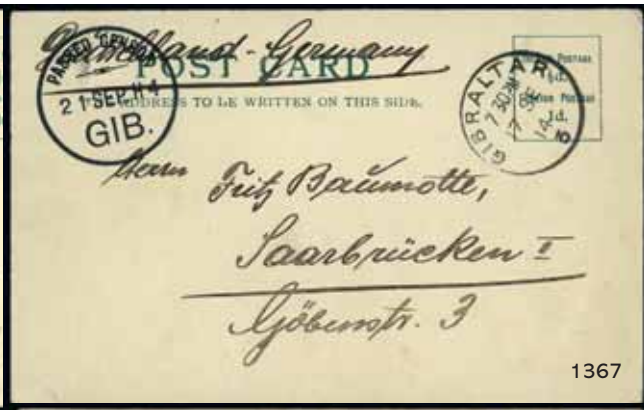 Deutschland - Germany
POST CARD
ADDRESS TO BE WRITTEN ON THIS SIDE.
PASSED CENSOR
21 SEP 14
GIB.
GIBRALTAR
7 30 PM
17 SE
14
POSTAGE
½d.
FOREIGN POSTAGE
1d.
Herrn
Fritz Baumotte,
Saarbrücken II
Göbenstr. 3
1367